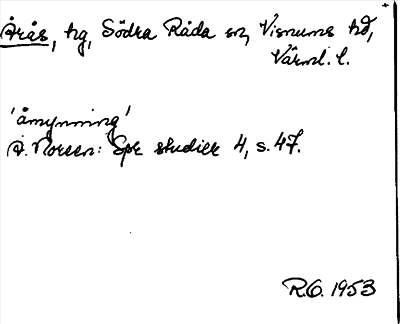 Årås, hg, Södra Råda sn, Visnums hd,
Värml. l.
'åmynning'
A. Noreen: Spr studier 4, s. 47.
R.O. 1953